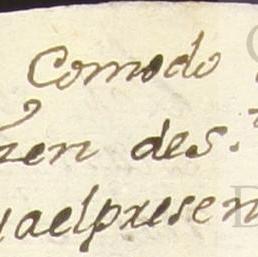 Comodo
en des.
aelpresen